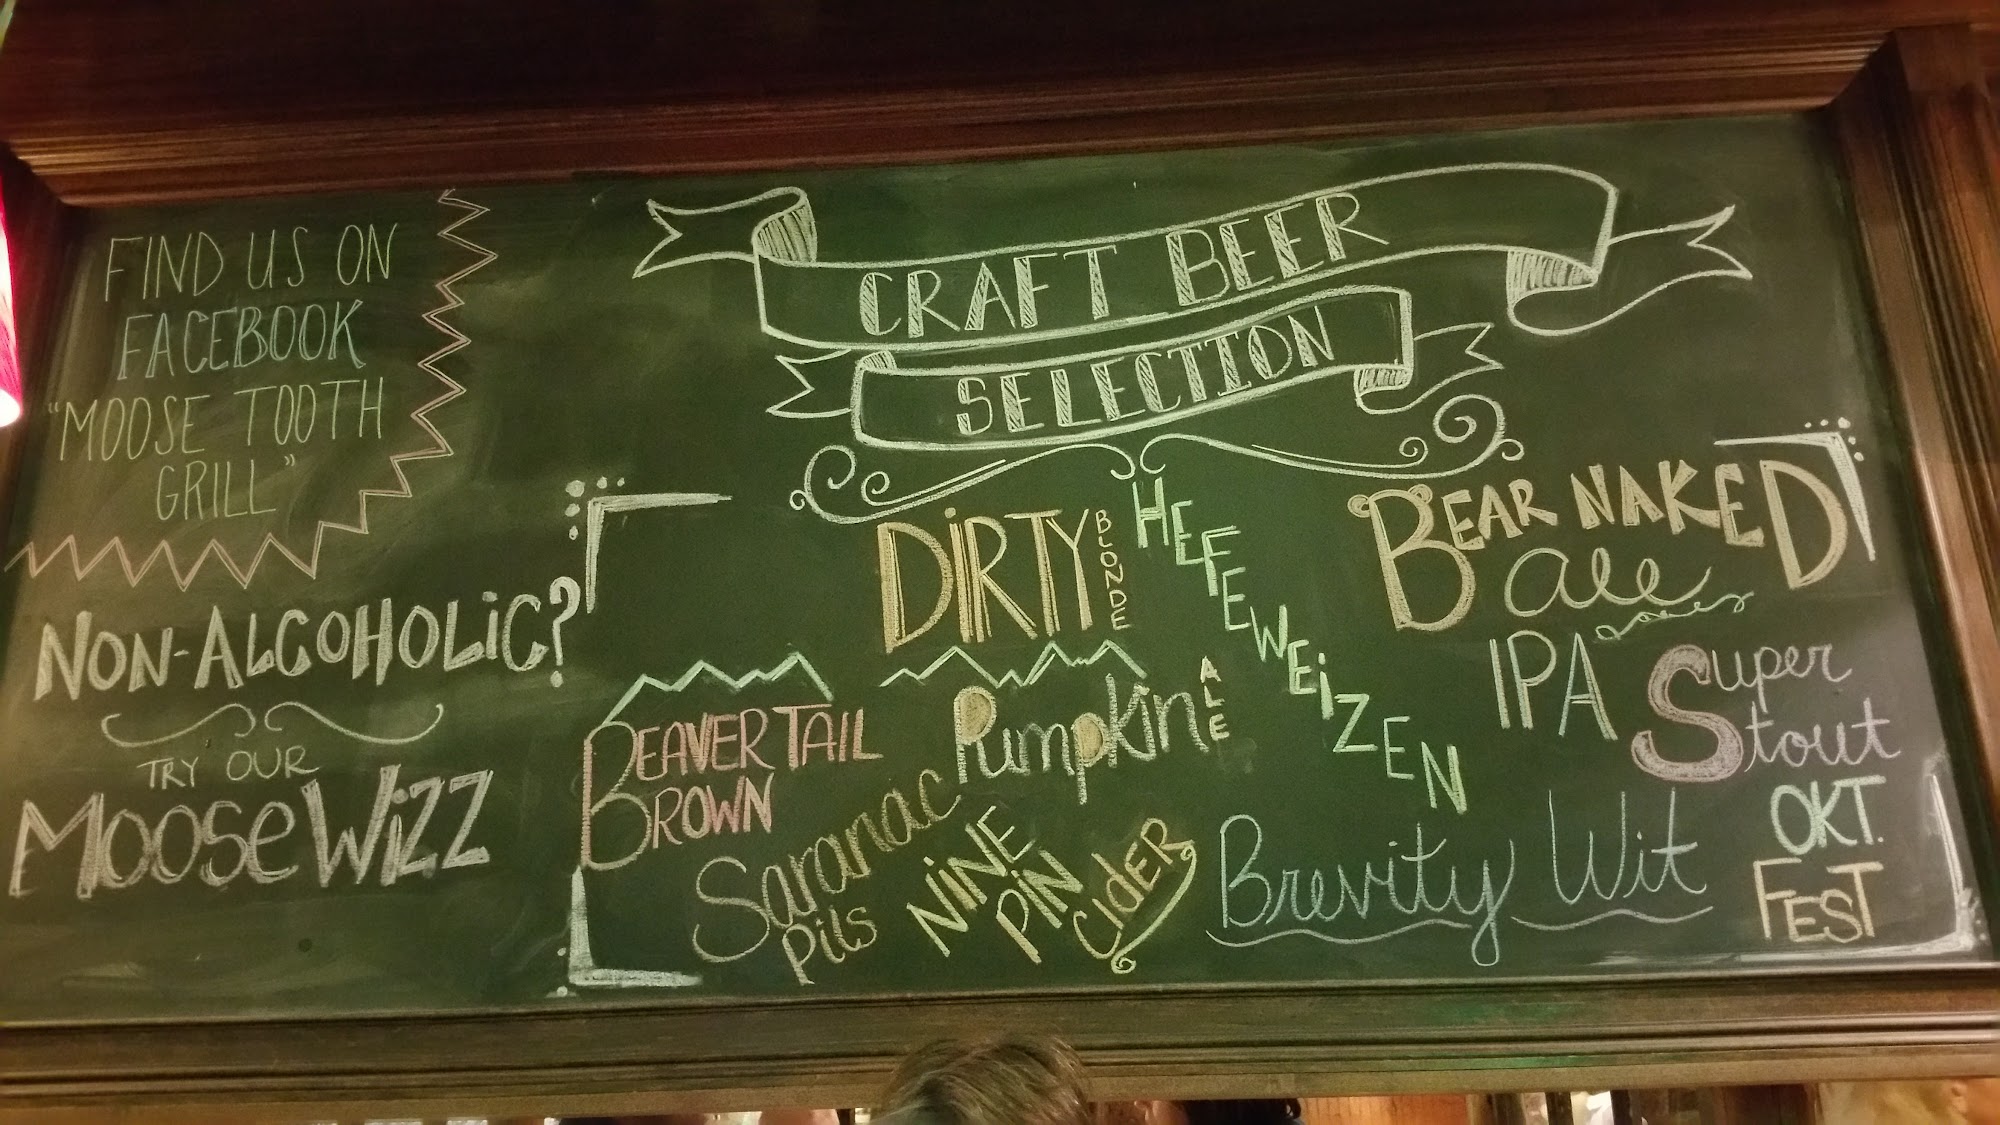 FIND US ON
FACEBOOK
"MOOSE TOOTH
GRILL"
NON-ALCOHOLiC?
TRY OUR
MOOSE WiZZ
CRAFT BEER
SELECTION
DiRTY BLONDE
HEFEWEiZEN
BEAR NAKED
ale
IPA
Super
Stout
BEAVER TAIL
BROWN
Pumpkin ALE
Saranac
Pils
NiNE
PiN
CideR
Brevity Wit
OKT.
FEST